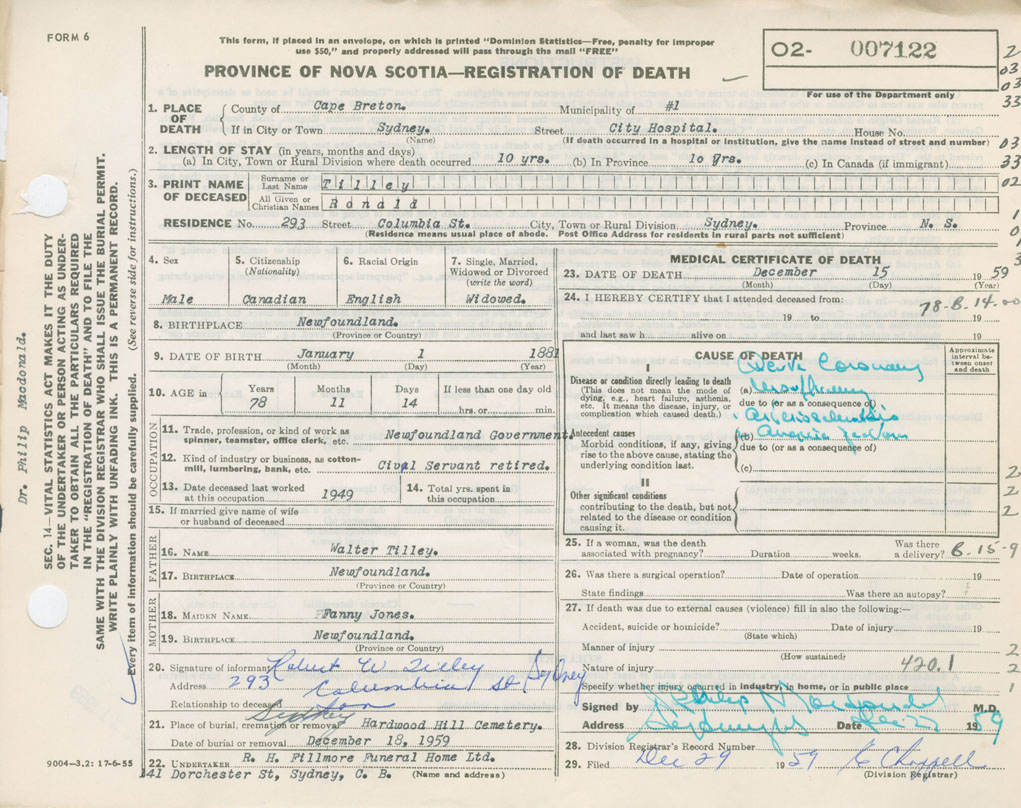 FORM 6
This form, if placed in an envelope, on which is printed "Dominion Statistics—Free, penalty for improper
use $50," and properly addressed will pass through the mail "FREE"
PROVINCE OF NOVA SCOTIA—REGISTRATION OF DEATH
02- 007122
For use of the Department only
1. PLACE OF DEATH
County of Cape Breton. Municipality of #1
If in City or Town Sydney. Street City Hospital. House No.
(Name) (If death occurred in a hospital or institution, give the name instead of street and number)
2. LENGTH OF STAY (in years, months and days)
(a) In City, Town or Rural Division where death occurred 10 yrs. (b) In Province 10 yrs. (c) In Canada (if immigrant)
3. PRINT NAME OF DECEASED
Surname or Last Name Tilley
All Given or Christian Names Ronald
RESIDENCE No. 293 Street Columbia St. City, Town or Rural Division Sydney. Province N. S.
(Residence means usual place of abode. Post Office Address for residents in rural parts not sufficient)
4. Sex
Male
5. Citizenship
(Nationality)
Canadian
6. Racial Origin
English
7. Single, Married,
Widowed or Divorced
(write the word)
Widowed.
8. BIRTHPLACE Newfoundland.
(Province or Country)
9. DATE OF BIRTH January 1 1881
(Month) (Day) (Year)
10. AGE in
Years Months Days If less than one day old
78 11 14 hrs. or min.
OCCUPATION
11. Trade, profession, or kind of work as
spinner, teamster, office clerk, etc. Newfoundland Government.
12. Kind of industry or business, as cotton-
mill, lumbering, bank, etc. Civil Servant retired.
13. Date deceased last worked
at this occupation 1949
14. Total yrs. spent in
this occupation
15. If married give name of wife
or husband of deceased
FATHER
16. NAME Walter Tilley.
17. BIRTHPLACE Newfoundland.
(Province or Country)
MOTHER
18. MAIDEN NAME Fanny Jones.
19. BIRTHPLACE Newfoundland.
(Province or Country)
20. Signature of informant Robert W Tilley
Address 293 Columbia St Sydney
Relationship to deceased son
21. Place of burial, cremation or removal Sydney Hardwood Hill Cemetery.
Date of burial or removal December 18, 1959
22. UNDERTAKER R. H. Fillmore Funeral Home Ltd.
141 Dorchester St, Sydney, C. B. (Name and address)
9004—3.2: 17-6-55
MEDICAL CERTIFICATE OF DEATH
23. DATE OF DEATH December 15 1959
(Month) (Day) (Year)
24. I HEREBY CERTIFY that I attended deceased from:
78-B-14.00
19 to 19
and last saw h alive on 19
CAUSE OF DEATH
Approximate interval between onset and death
I
Disease or condition directly leading to death
(This does not mean the mode of
dying, e.g., heart failure, asthenia,
etc. It means the disease, injury, or
complication which caused death.)
Coronary
(a)
due to (or as a consequence of)
Antecedent causes
Morbid conditions, if any, giving
rise to the above cause, stating the
underlying condition last.
(b)
due to (or as a consequence of)
(c)
II
Other significant conditions
contributing to the death, but not
related to the disease or condition
causing it.
25. If a woman, was the death
associated with pregnancy? Duration weeks. Was there
a delivery? B-15-9
26. Was there a surgical operation? Date of operation 19
State findings Was there an autopsy?
27. If death was due to external causes (violence) fill in also the following:—
Accident, suicide or homicide? Date of injury 19
(State which)
Manner of injury
(How sustained)
Nature of injury 420.1
Specify whether injury occurred in industry, in home, or in public place
Signed by M.D.
Address Date 1959
28. Division Registrar's Record Number
29. Filed Dec 29 1959 E Chappell
(Division Registrar)
SEC. 14—VITAL STATISTICS ACT MAKES IT THE DUTY
OF THE UNDERTAKER OR PERSON ACTING AS UNDER-
TAKER TO OBTAIN ALL THE PARTICULARS REQUIRED
IN THE "REGISTRATION OF DEATH" AND TO FILE THE
SAME WITH THE DIVISION REGISTRAR WHO SHALL ISSUE THE BURIAL PERMIT.
WRITE PLAINLY WITH UNFADING INK. THIS IS A PERMANENT RECORD.
Every item of information should be carefully supplied. (See reverse side for instructions.)
Dr. Philip Macdonald.